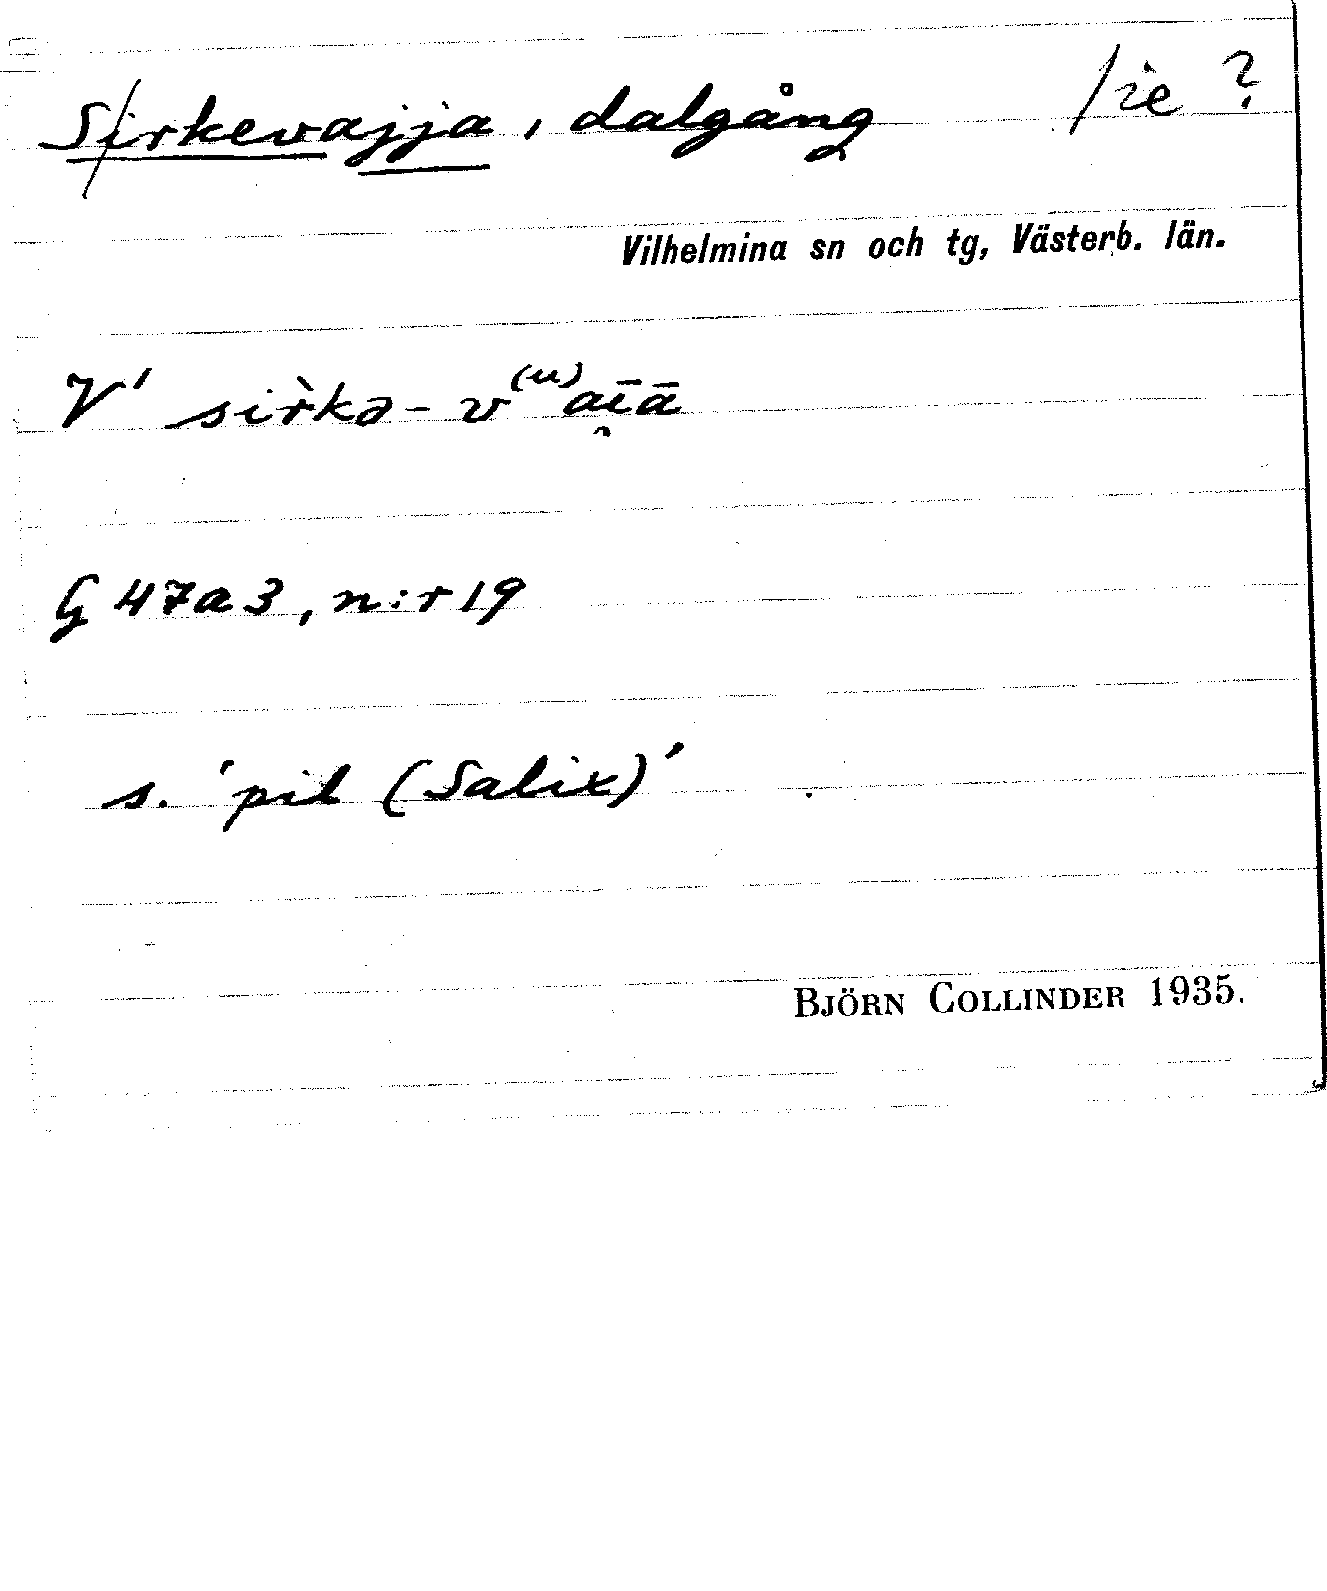 Sirkevajja, dalgång /ie ?
Vilhelmina sn och tg, Västerb. län.
V' sìrkə-v⁽ᵘ⁾aī̯ā
G 47a3, n:r 19
s. 'pil (Salix)'
BJÖRN COLLINDER 1935.